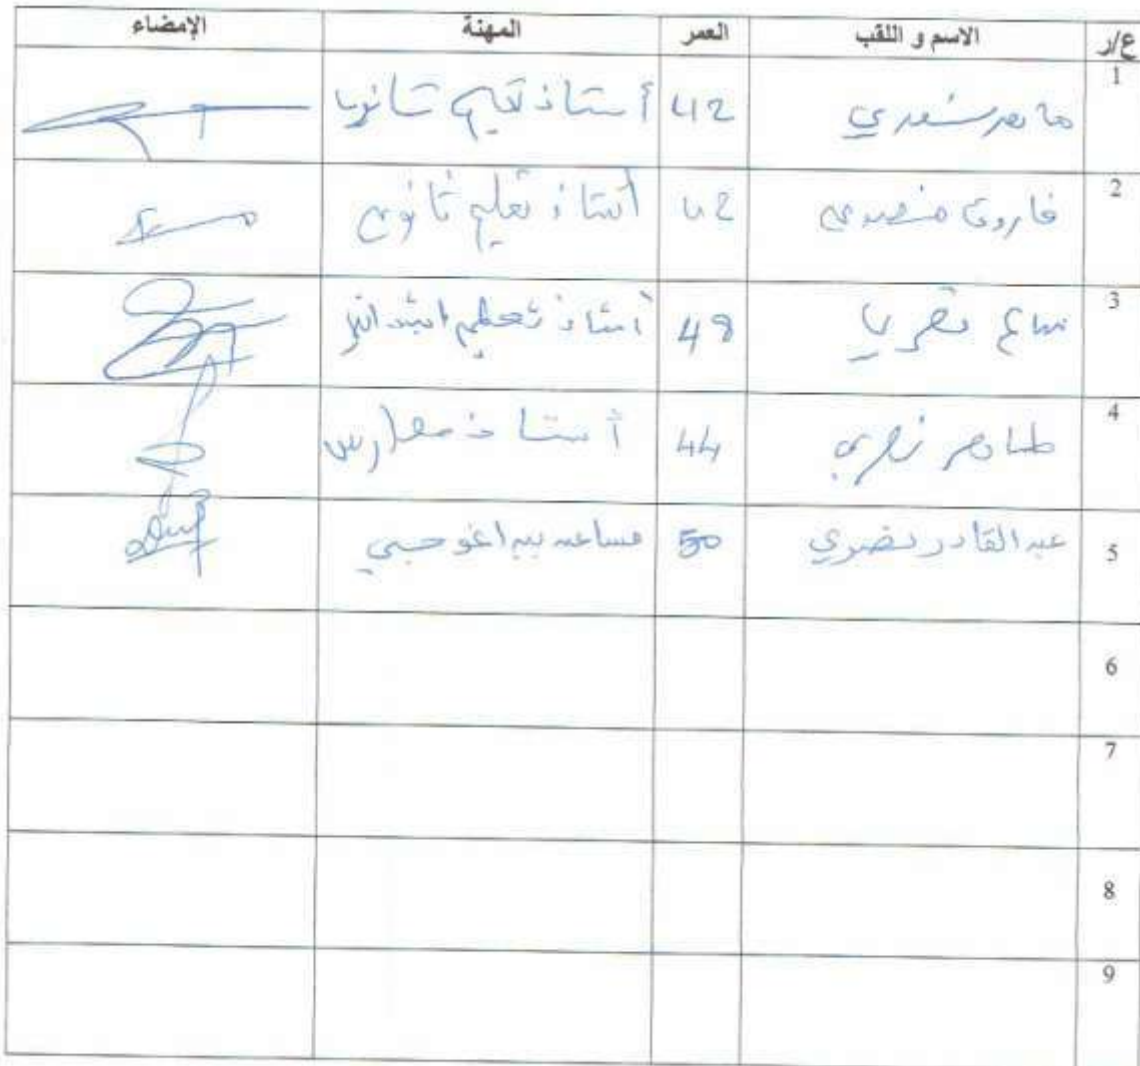 ع/ر الاسم و اللقب العمر المهنة الإمضاء
1 ماهر سعدي 42 أستاذ تعليم ثانوي
2 فاروق منصوري 42 أستاذ تعليم ثانوي
3 48 أستاذ تعليم ابتدائي
4 طاهر 44 أستاذ مدارس
5 عبد القادر نصري 50 مساعد بيداغوجي
6
7
8
9